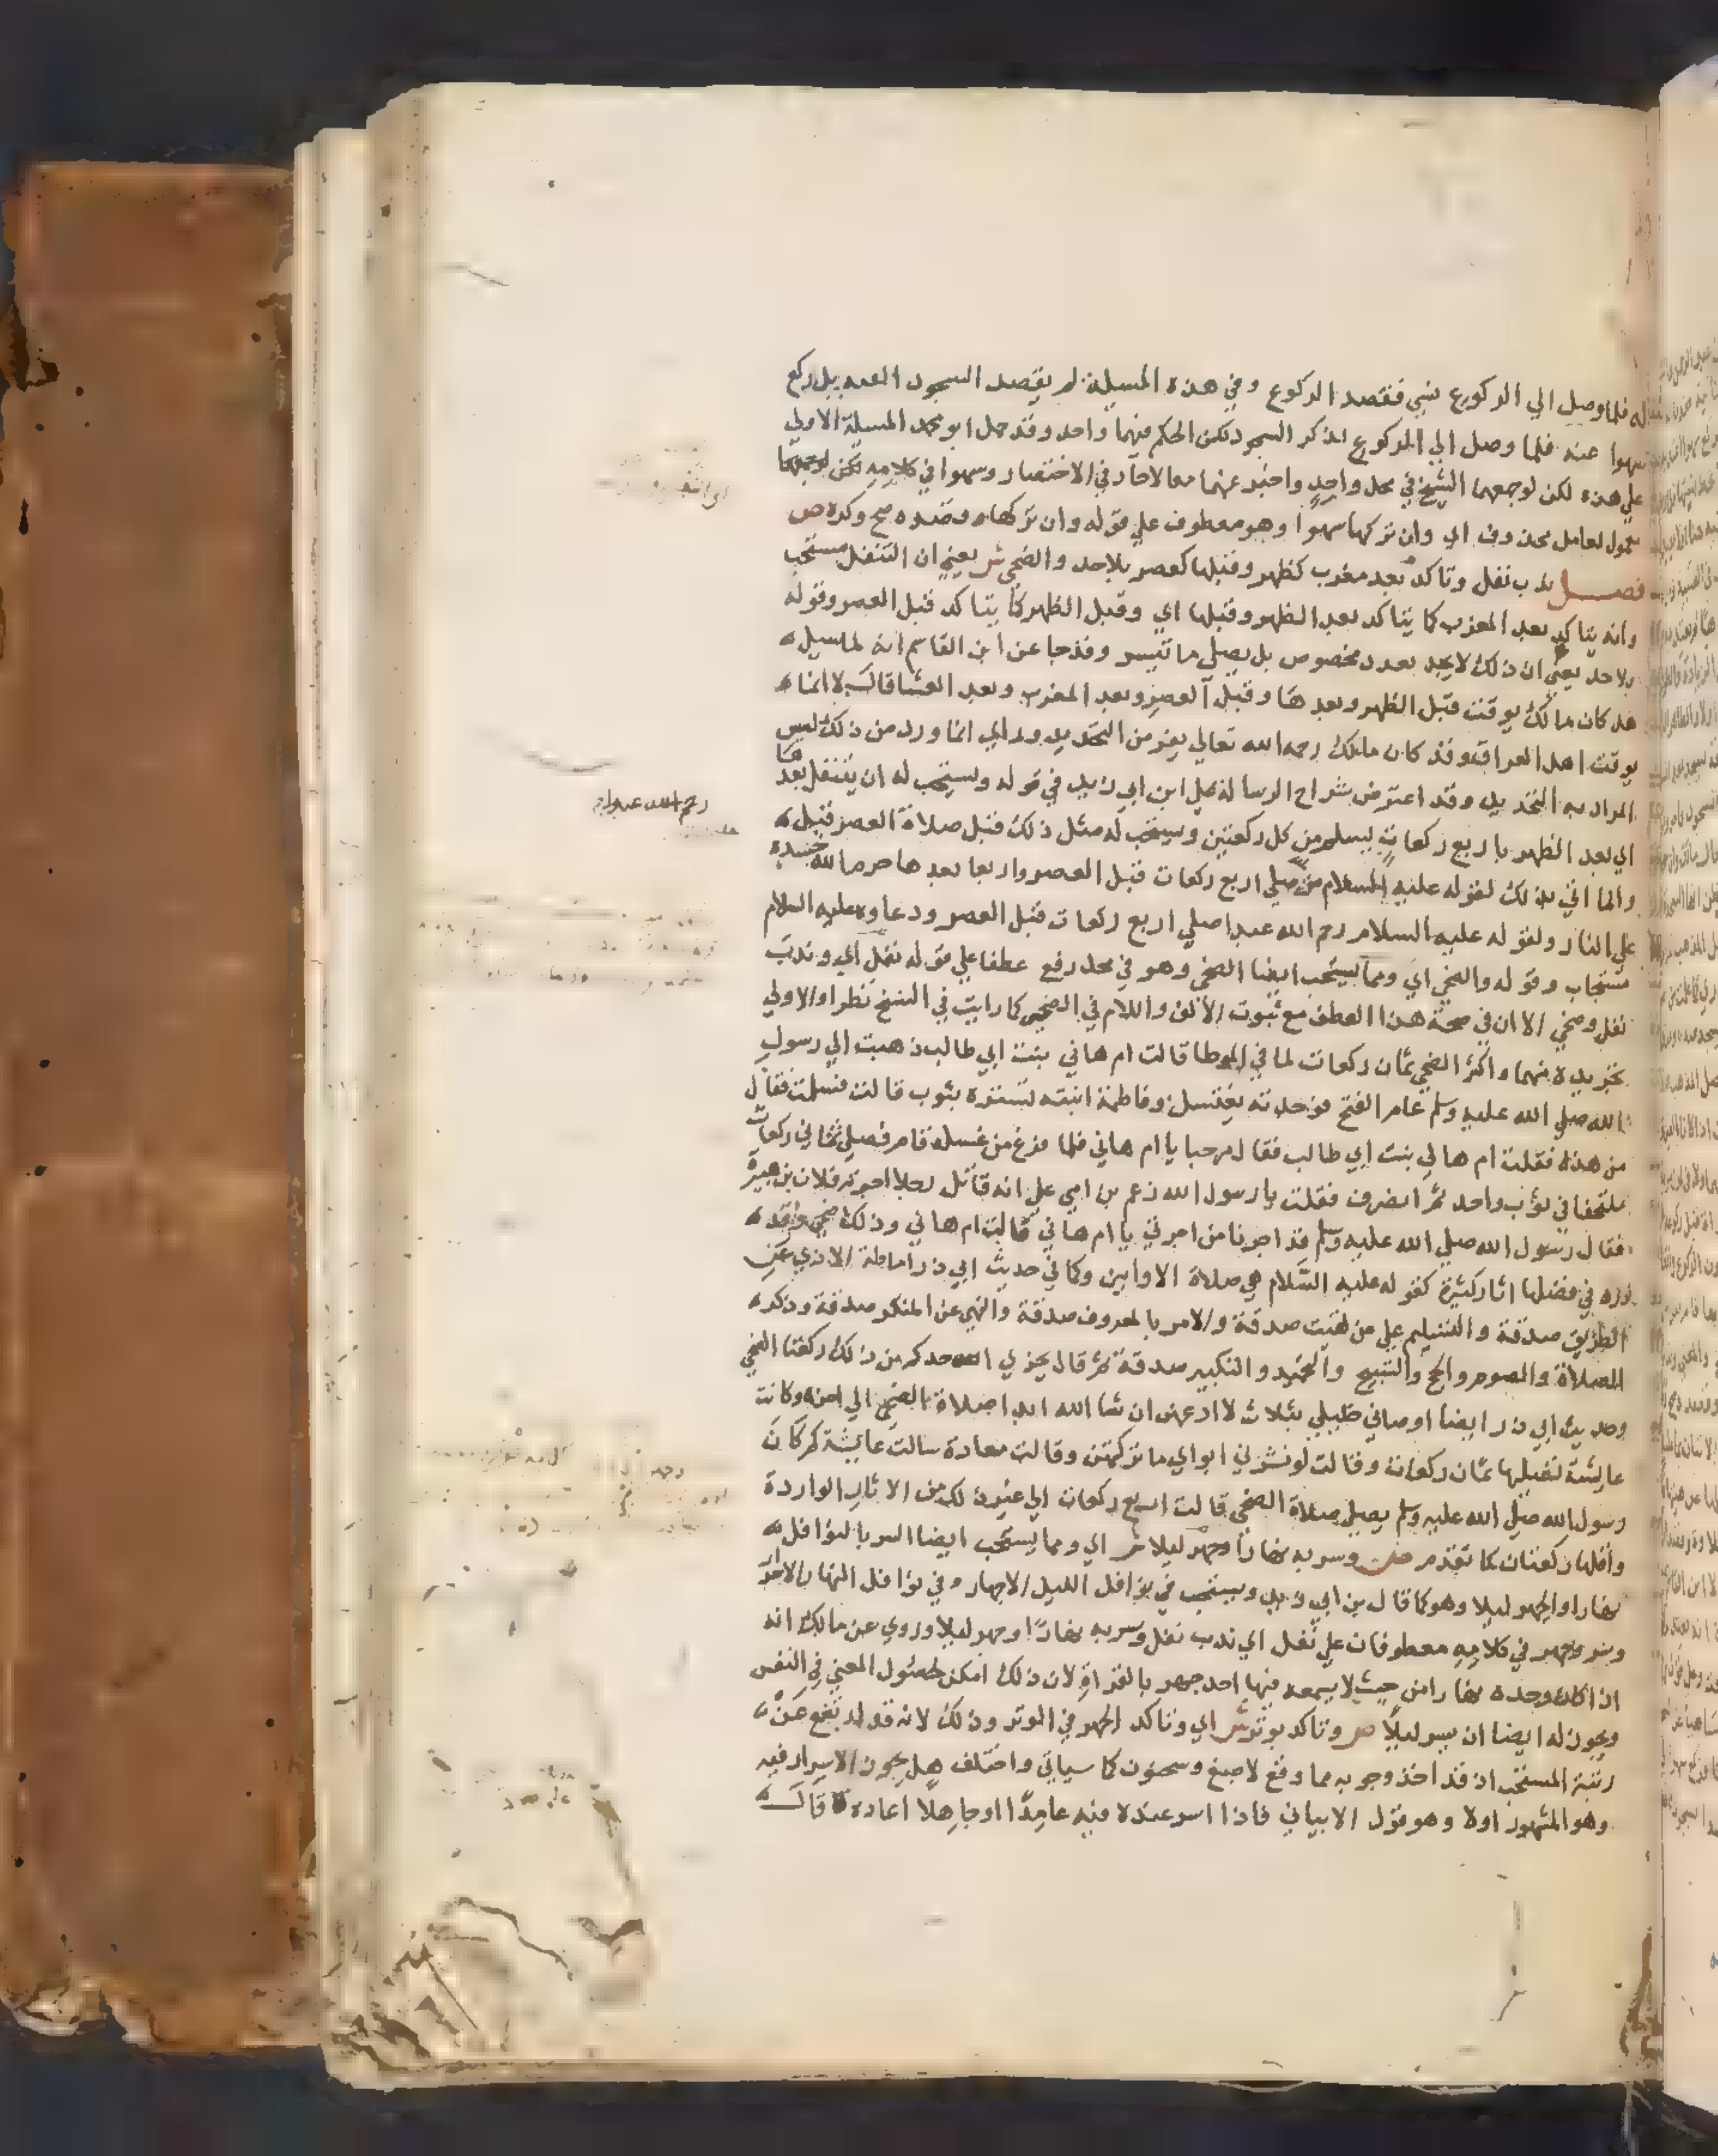 له فلما وصل الي الركوع نسي فقصد الركوع وفي هذه المسيلة لم يقصد السجود البته بل ركع
سهوا عنه فلما وصل الي الركوع اذكر السجود لكن الحكم فيهما واحد وقد حمل ابو محمد المسيلة الاولي
علي هذه لكن لوجعهما الشيخ في محل واحد واخبر عنهما معا لاجاد في الاختصار وسهوا في كلامه لكن
معمول لعامل محذوف اي وان تركها سهوا وهو معطوف علي قوله وان تركها وقصده صح وكره ص
فصل ندب نفل وتاكد بعد مغرب كظهر وقبلها كعصر بلا حد والضحي ش يعني ان التنفل مستحب
وانه يتاكد بعد المغرب كما يتاكد بعد الظهر وقبلها اي وقبل الظهر كما يتاكد قبل العصر وقوله
بلا حد يعني ان ذلك لا يحد بعدد مخصوص بل يصلي ما تيسر وقد جا عن ابن القاسم انه لما سيل
هل كان مالك يوقت قبل الظهر وبعدها وقبل العصر وبعد المغرب وبعد العشا قال لا انما
يوقت اهل العراق وقد كان مالك رحمه الله تعالي يفر من التحديد وراي انما ورد من ذلك ليس
المراد به التحديد وقد اعترض شراح الرسالة علي ابن ابي زيد في قوله ويستحب له ان يتنفل بعدها
اي بعد الظهر باربع ركعات يسلم من كل ركعتين ويستحب له مثل ذلك قبل صلاة العصر قيل
وانما اتي بذلك لقوله عليه السلام من صلي اربع ركعات قبل العصر واربعا بعدها حرم الله جسده
علي النار ولقوله عليه السلام رحم الله عبدا صلي اربع ركعات قبل العصر ودعاوه عليه السلام
مستجاب وقوله والضحي اي ومما يستحب ايضا الضحي وهو في محل رفع عطفا علي قوله نفل اي وندب
نفل وضحي الا ان في صحة هذا العطف مع ثبوت الالف واللام في الضحي كما رايت في النسخ نظرا والاولي
تجريده منهما واكثر الضحي ثمان ركعات لما في الموطا قالت ام هاني بنت ابي طالب ذهبت الي رسول
الله صلي الله عليه وسلم عام الفتح فوجدته يغتسل وفاطمة ابنته تستره بثوب قالت فسلمت فقال
من هذه فقلت ام هاني بنت ابي طالب فقال مرحبا يا ام هاني فلما فرغ من غسله قام فصلي ثماني ركعات
ملتحفا في ثوب واحد ثم انصرف فقلت يا رسول الله زعم بن امي علي انه قاتل رجلا اجرته فلان بن هبيرة
فقال رسول الله صلي الله عليه وسلم قد اجرنا من اجرتي يا ام هاني قالت ام هاني وذلك ضحي وقد
ورد في فضلها اثار كثيرة كقوله عليه السلام هي صلاة الاوابين وكما في حديث ابي ذر اماطة الاذي عن
الطريق صدقة والتسليم علي من لقيت صدقة والامر بالمعروف صدقة والنهي عن المنكر صدقة وذكر
الصلاة والصوم والحج والتسبيح والتحميد والتكبير صدقة ثم قال يجزي احدكم من ذلك ركعتا الضحي
وحديث ابي ذر ايضا اوصاني خليلي بثلاث لا ادعهن ان شا الله ابدا صلاة الضحي الي اخره وكانت
عايشة تصليها ثمان ركعات وقالت لو نشر لي ابواي ما تركتهن وقالت معادة سالت عايشة كم كان
رسول الله صلي الله عليه وسلم يصلي صلاة الضحي قالت اربع ركعات الي غير ذلك من الاثار الواردة
واقلها ركعتان كما تقدم ص وسر به نهارا وجهر ليلا ش اي ومما يستحب ايضا السر بالنوافل
نهارا والجهر ليلا وهو كما قال بن ابي زيد ويستحب في نوافل الليل الاجهار وفي نوافل النهار الاسرار
وسر وجهر في كلامه معطوفان علي نفل اي ندب نفل وسر به نهارا وجهر ليلا وروي عن مالك انه
اذا كان وحده نهارا من حيث لا يسمعه فيها احد جهر بالقراة لان ذلك امكن لحصول المعني في النفس
ويجوز له ايضا ان يسر ليلا ص وتاكد بوتر ش اي وتاكد الجهر في الوتر وذلك لانه قد ارتفع عن
رتبة المستحب اذ قد اخذ وجوبه مما وقع لاصبغ وسحنون كما سياتي واختلف هل يجوز الاسرار فيه
وهو المشهور اولا وهو قول الابياني فاذا اسر عنده فيه عامدا او جاهلا اعاده قال
رحم الله عبدا